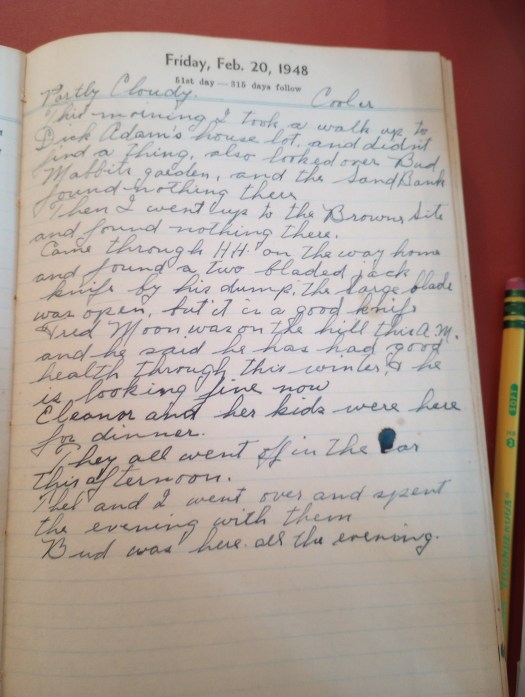 Friday, Feb. 20, 1948
51st day — 315 days follow
Partly Cloudy. Cooler
This morning I took a walk up to
Dick Adam's house lot, and didn't
find a thing, also looked over Bud
Mabbits garden, and the Sand Bank
found nothing there
Then I went up to the Browns Site
and found nothing there.
Came through H.H. on the way home
and found a two bladed jack
knife by his dump, the large blade
was open, but it is a good knife
Fred Moon was on the hill this A.M.
and he said he has had good
health through this winter, & he
is looking fine now
Eleanor and her kids were here
for dinner.
They all went off in the car
this afternoon.
and I went over and spent
the evening with them
Bud was here all the evening.